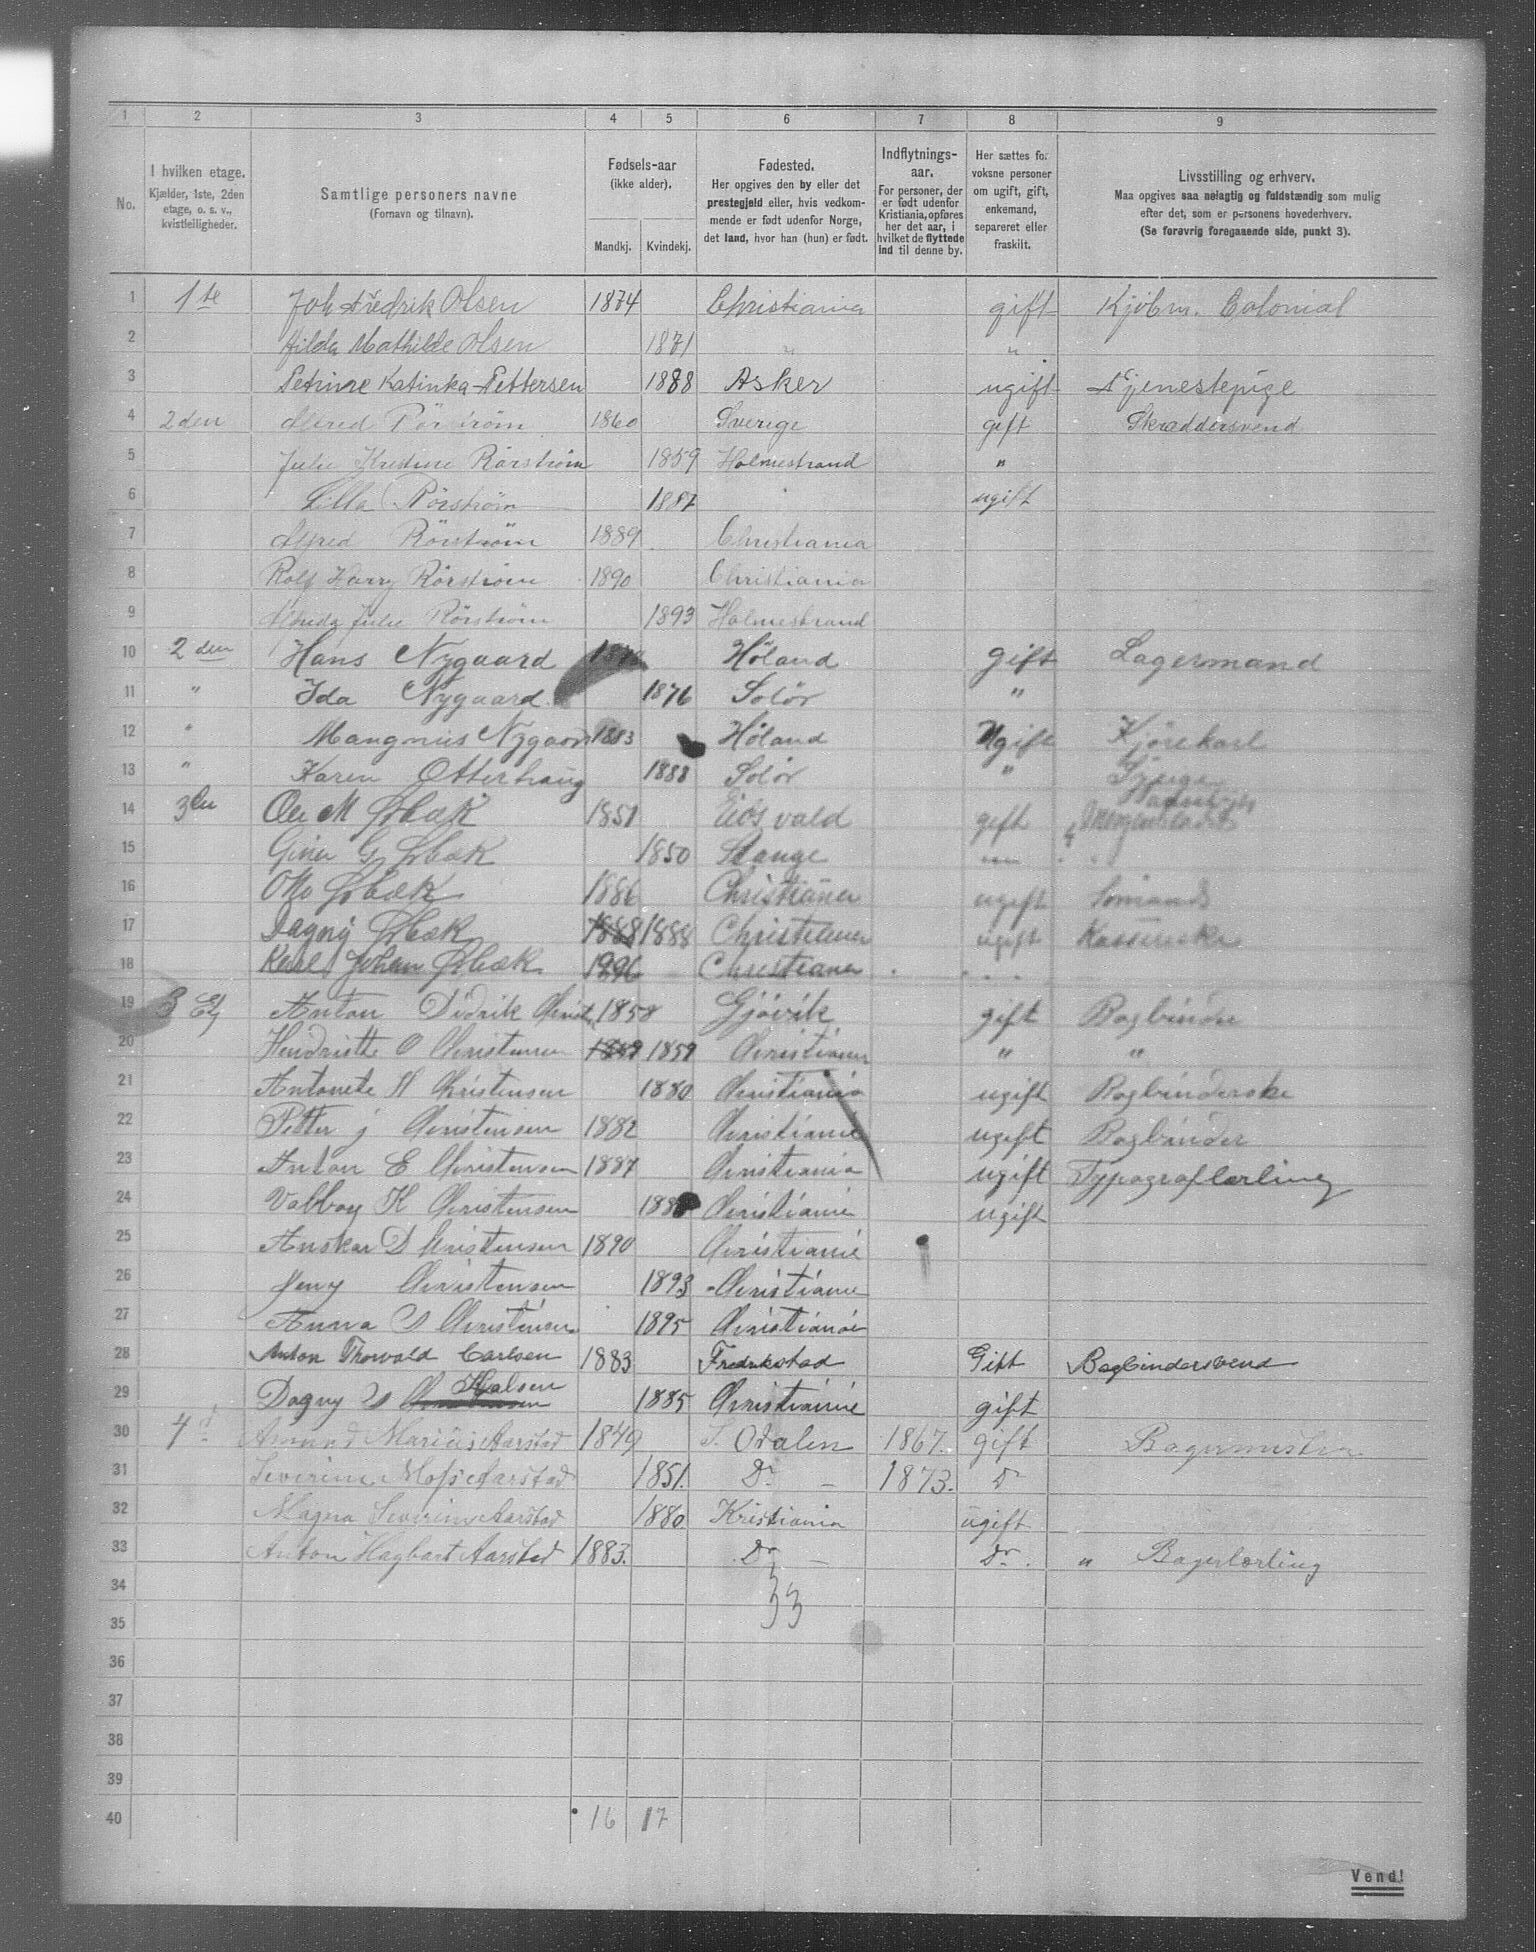 1 2 3 4 5 6 7 8 9
No.
I hvilken etage.
Kjælder, 1ste, 2den
etage, o. s. v.,
kvistleiligheder.
Samtlige personers navne
(Fornavn og tilnavn).
Fødsels-aar
(ikke alder).
Mandkj. Kvindekj.
Fødested.
Her opgives den by eller det
prestegjeld eller, hvis vedkom-
mende er født udenfor Norge,
det land, hvor han (hun) er født.
Indflytnings-
aar.
For personer, der
er født udenfor
Kristiania, opføres
her det aar, i
hvilket de flyttede
ind til denne by.
Her sættes for
voksne personer
om ugift, gift,
enkemand,
separeret eller
fraskilt.
Livsstilling og erhverv.
Maa opgives saa nøiagtig og fuldstændig som mulig
efter det, som er personens hovederhverv.
(Se forøvrig foregaaende side, punkt 3).
1 1te Joh Fredrik Olsen 1874 Christiania gift Kjøbm. Colonial
2 Hilda Mathilde Olsen 1871 " "
3 Petrine Katinka Pettersen 1888 Asker ugift Tjenestepige
4 2den Alfred Rörström 1860 Sverige gift Skræddersvend
5 Julie Kristine Rörström 1859 Holmestrand "
6 Lilla Rörström 1887 ugift
7 Alfred Rörström 1889 Christiania
8 Rolf Harry Rörström 1890 Christiania
9 Julie Rörström 1893 Holmestrand
10 2den Hans Nygaard Høland gift Lagermand
11 " Ida Nygaard. 1876 Solör "
12 " Mangnus Nygaar 1883 Høland Ugift Kjörekarl
13 " Karen Otterhaug 1888 Solör "
14 3die Ole M Ørbæk 1851 Eidsvald gift
15 G Ørbæk 1850 Stange
16 Otto Ørbæk 1886 Christiania ugift Sømand
17 Dagny Ørbæk 1888 1888 Christiania ugift Kasserske
18 Karl Johan Ørbæk 1896 Christiania
19 3 Etg Anton Didrik Christ 1858 Gjøvik gift Bogbinder
20 Hendriette O Christensen 1859 1859 Christiania " "
21 Antonete M Christensen 1880 Christiania ugift Bogbinderske
22 Petter j Christensen 1882 Christiania ugift Bogbinder
23 Anton E Christensen 1887 Christiania ugift Typograflærling
24 Valborg K Christensen Christiania ugift
25 Anskar D Christensen 1890 Christiania
26 Jeny Christensen 1893 Christiania
27 Anna Christensen 1895 Christiania
28 Anton Thorvald Carlsen 1883 Fredrikstad Gift Bogbindersvend
29 Dagny 1885 Christiania gift
30 4 Amund Marius Aarstad 1849 S. Odalen 1867. gift Bagermester
31 Severine Aarstad 1851. Do – 1873. Do
32 Magna Severine Aarstad 1880 Kristiania ugift
33 Anton Hagbart Aarstad 1883. Do – Do. " Bagerlærling
34 33
35
36
37
38
39
40 16 17
Vend!